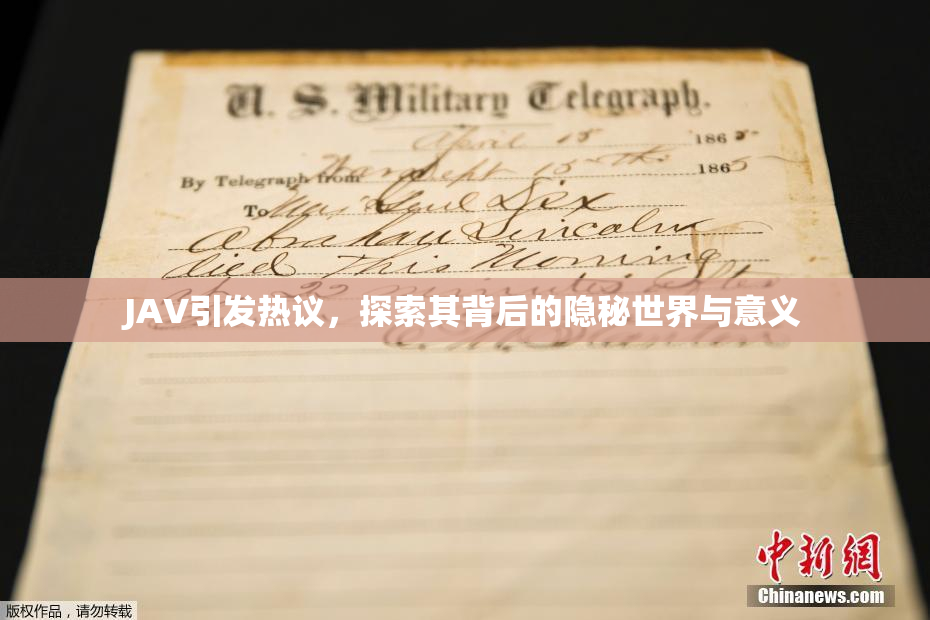 U. S. Military Telegraph.
April 15 1865
By Telegraph from War Dept 15th 1865
To Maj Genl Dix
Abraham Lincoln
died this Morning
at 22 minutes after
JAV引发热议，探索其背后的隐秘世界与意义
E. M. Stanton
中新网
Chinanews.com
版权作品，请勿转载